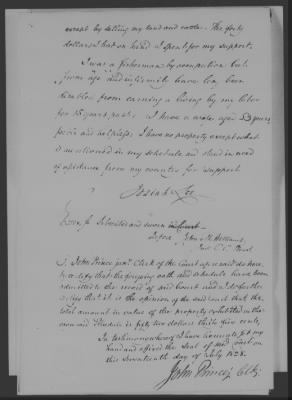 except by selling my land and cattle. The forty
dollars I had on hand I spent for my support.
I was a fisherman by occupation but
age and infirmity have long been
from earning a living by my labor
for 15 years past. I have a wife aged 53 years
feeble and helpless. I have no property except what
is mentioned in my schedule and stand in need
of assistance from my country for support
Josiah
Essex ss. Subscribed and sworn in Court
Before John
Just. C. C. Pleas
I John Prince junr. Clerk of the Court aforesaid do here
by certify that the foregoing oath and schedule have been
admitted to the record of said Court and I do further
certify that it is the opinion of the said Court that the
total amount in value of the property exhibited in the
aforesaid Schedule is fifty two dollars thirty five cents,
In testimony whereof I have hereunto set my
hand and affixed the seal of said Court on
this seventeenth day of July 1828.
John Prince jr Clk